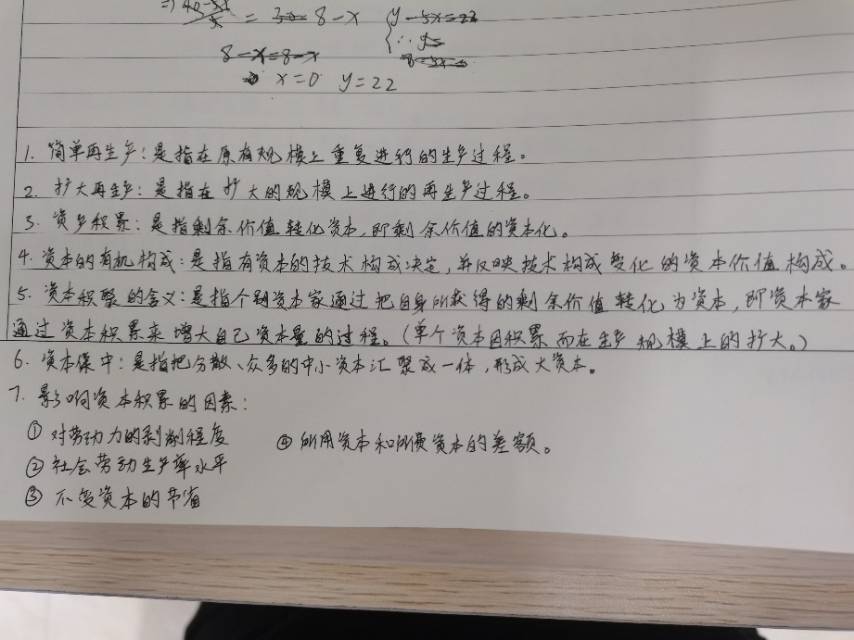 = 8-x
8-x=8-x
x=0 y=22
1. 简单再生产：是指在原有规模上重复进行的生产过程。
2. 扩大再生产：是指在扩大的规模上进行的再生产过程。
3. 资产积累：是指剩余价值转化资本，即剩余价值的资本化。
4. 资本的有机构成：是指有资本的技术构成决定，并反映技术构成变化的资本价值构成。
5. 资本积聚的含义：是指个别资本家通过把自身所获得的剩余价值转化为资本，即资本家
通过资本积累来增大自己资本量的过程。（单个资本因积累而在生产规模上的扩大。）
6. 资本集中：是指把分散、众多的中小资本汇聚成一体，形成大资本。
7. 影响资本积累的因素：
① 对劳动力的剥削程度 ④ 所用资本和所费资本的差额。
② 社会劳动生产率水平
③ 不变资本的节省